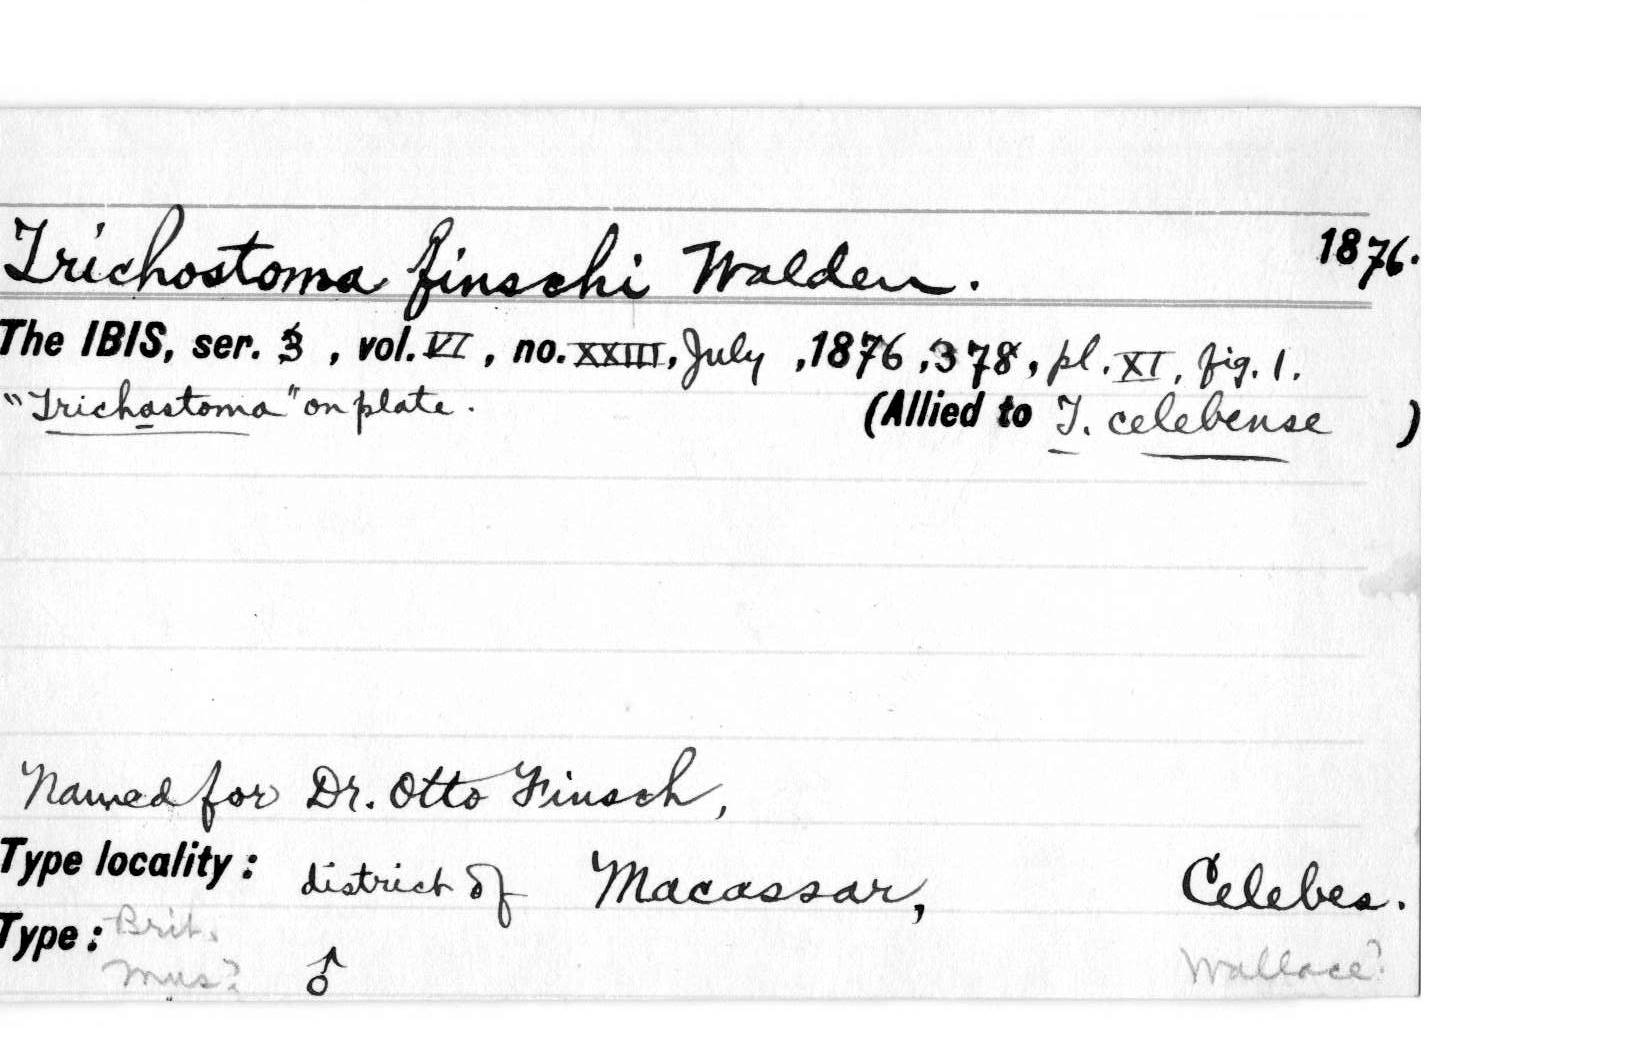 Trichostoma finschi Walden. 1876.
The IBIS, ser. 3, vol. VI, no. XXIII, July, 1876, 378, pl. XI, fig. 1.
"Trichastoma" on plate. (Allied to T. celebense)
Named for Dr. Otto Finsch,
Type locality: district of Macassar, Celebes.
Type: Brit. Mus? ♂ Wallace?